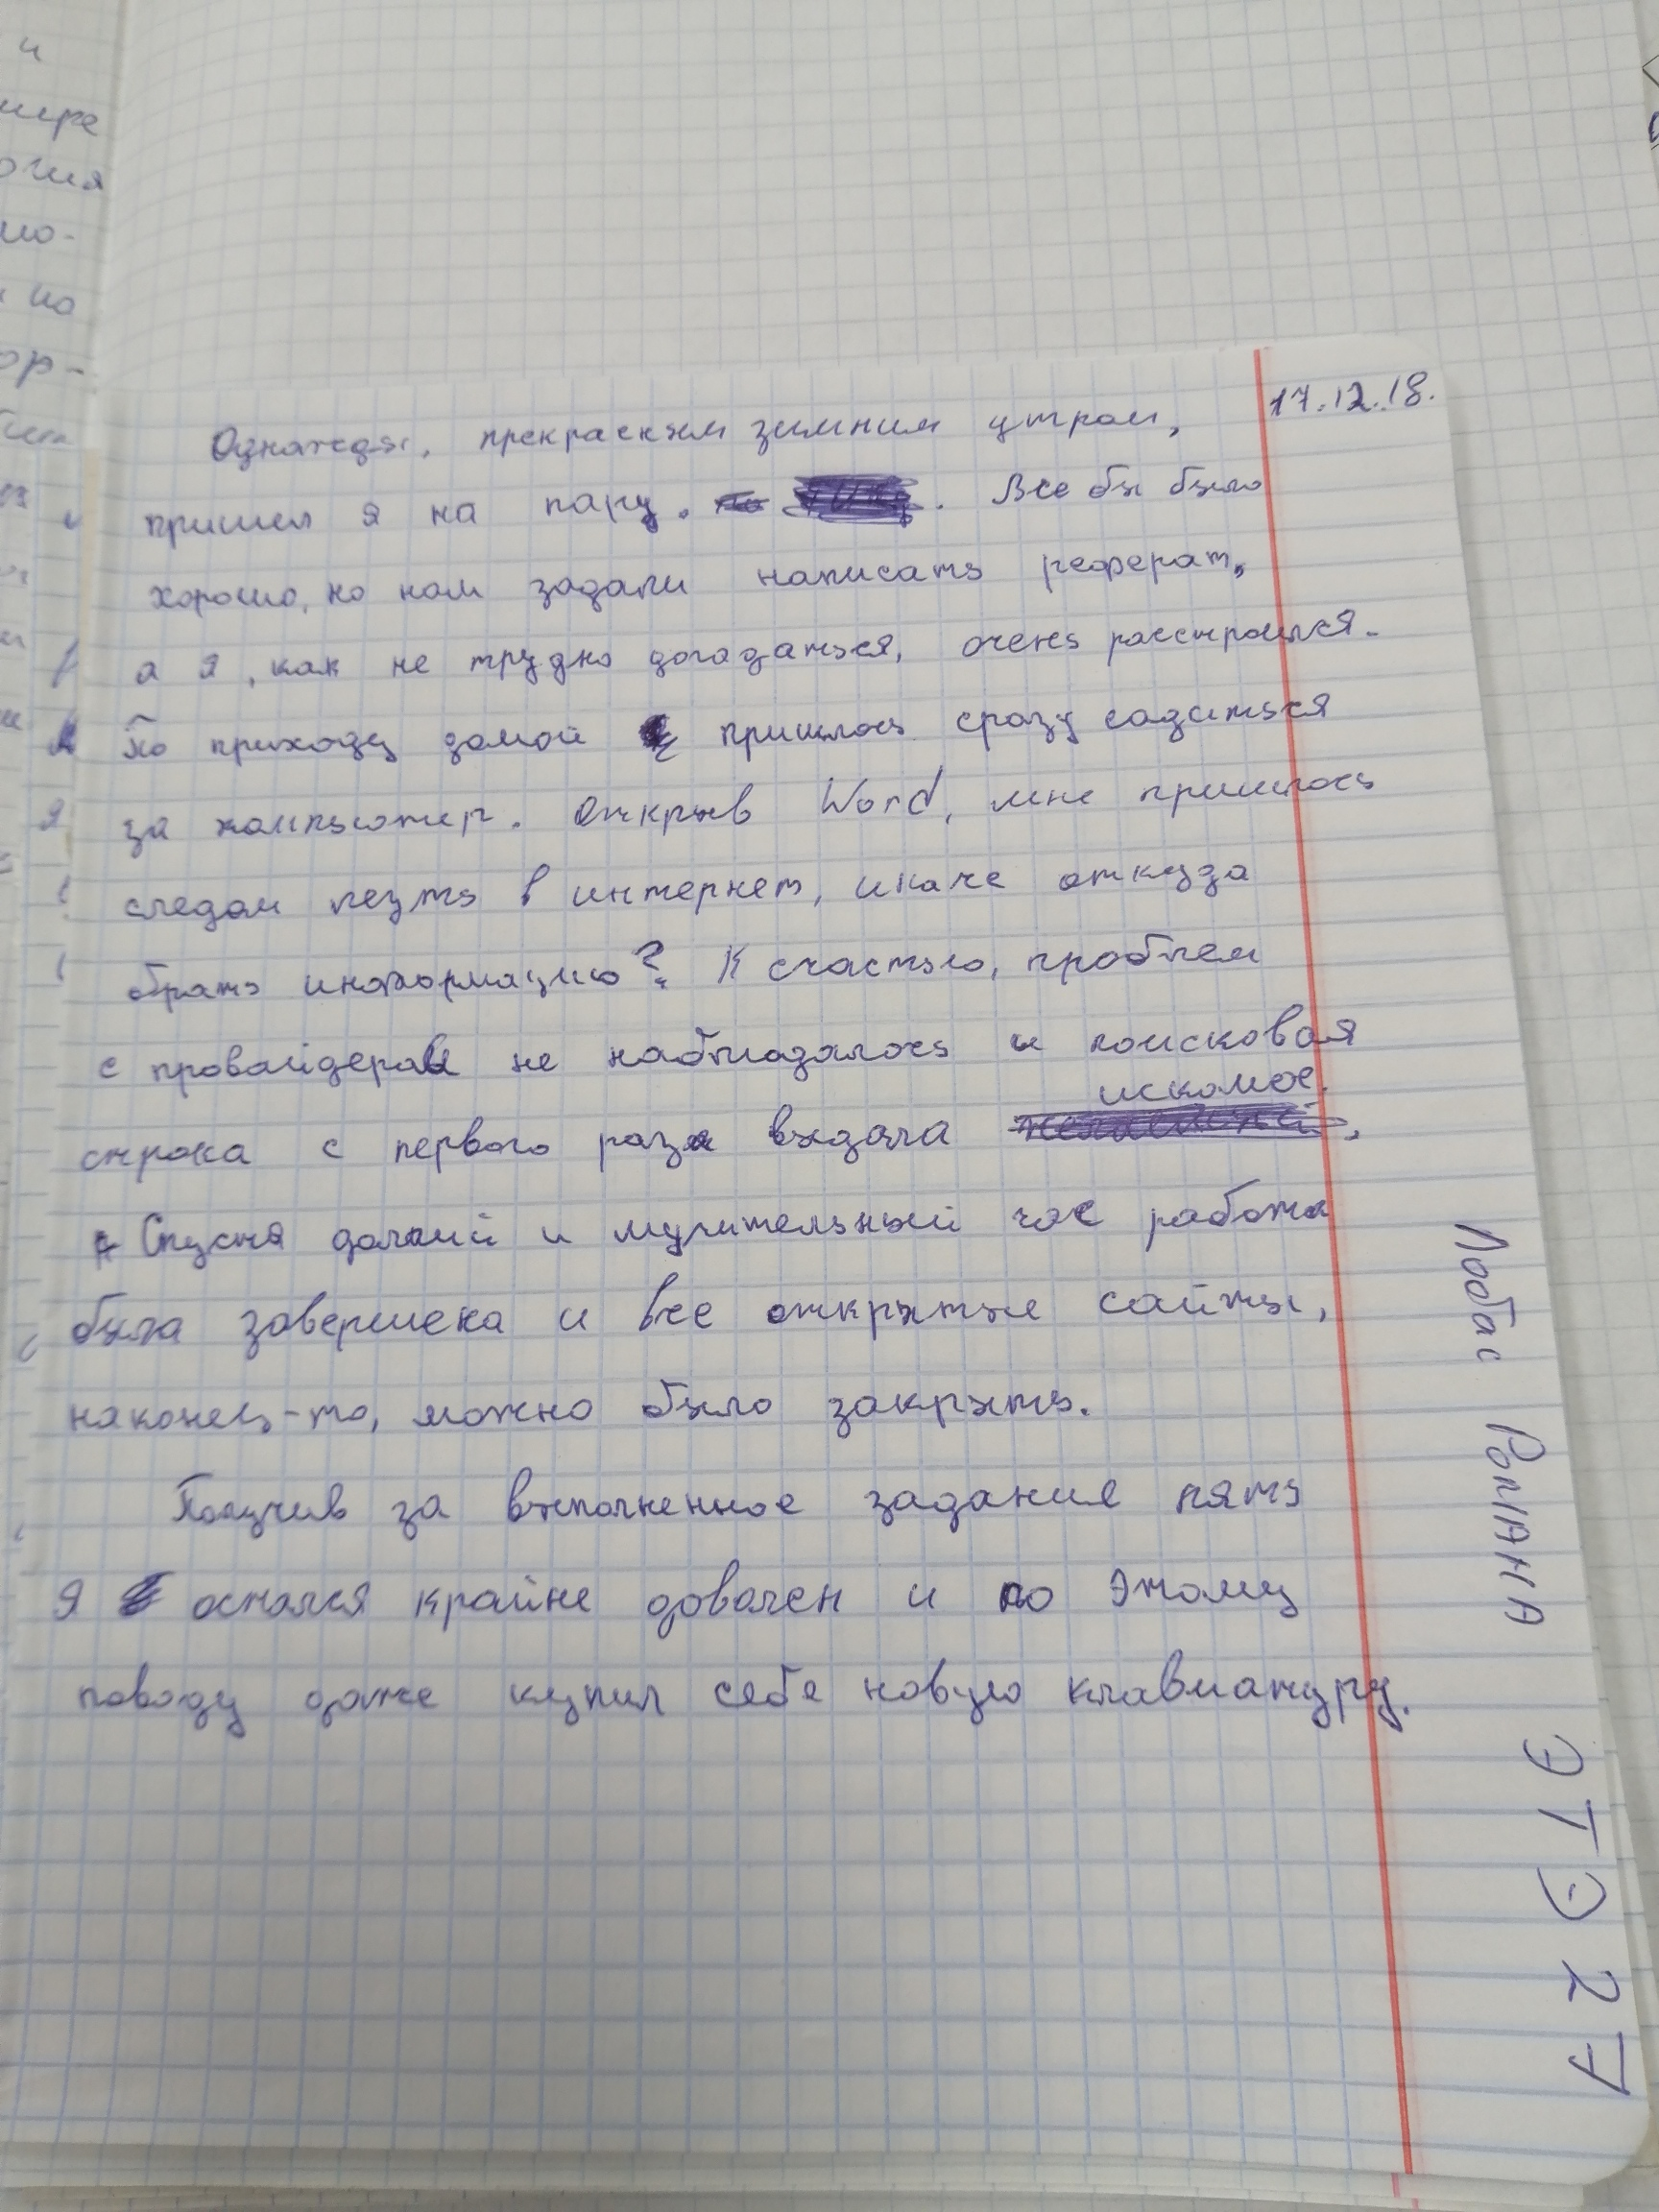 17.12.18.
Однажды, прекрасным зимним утром,
пришел я на пару. Все бы было
хорошо, но нам задали написать реферат,
а я, как не трудно догадаться, очень расстроился.
По приходу домой пришлось сразу садиться
за компьютер. Открыв Word, мне пришлось
следом лезть в интернет, иначе откуда
брать информацию? К счастью, проблем
с провайдером не наблюдалось и поисковая
строка с первого раза выдала искомое.
Спустя долгий и мучительный час работа
была завершена и все открытые сайты,
наконец-то, можно было закрыть.
Получив за выполненное задание пять
я остался крайне доволен и по этому
поводу даже купил себе новую клавиатуру.
Лобас РОМАНА ЭТЭ 27
и
мире
но-
ор-